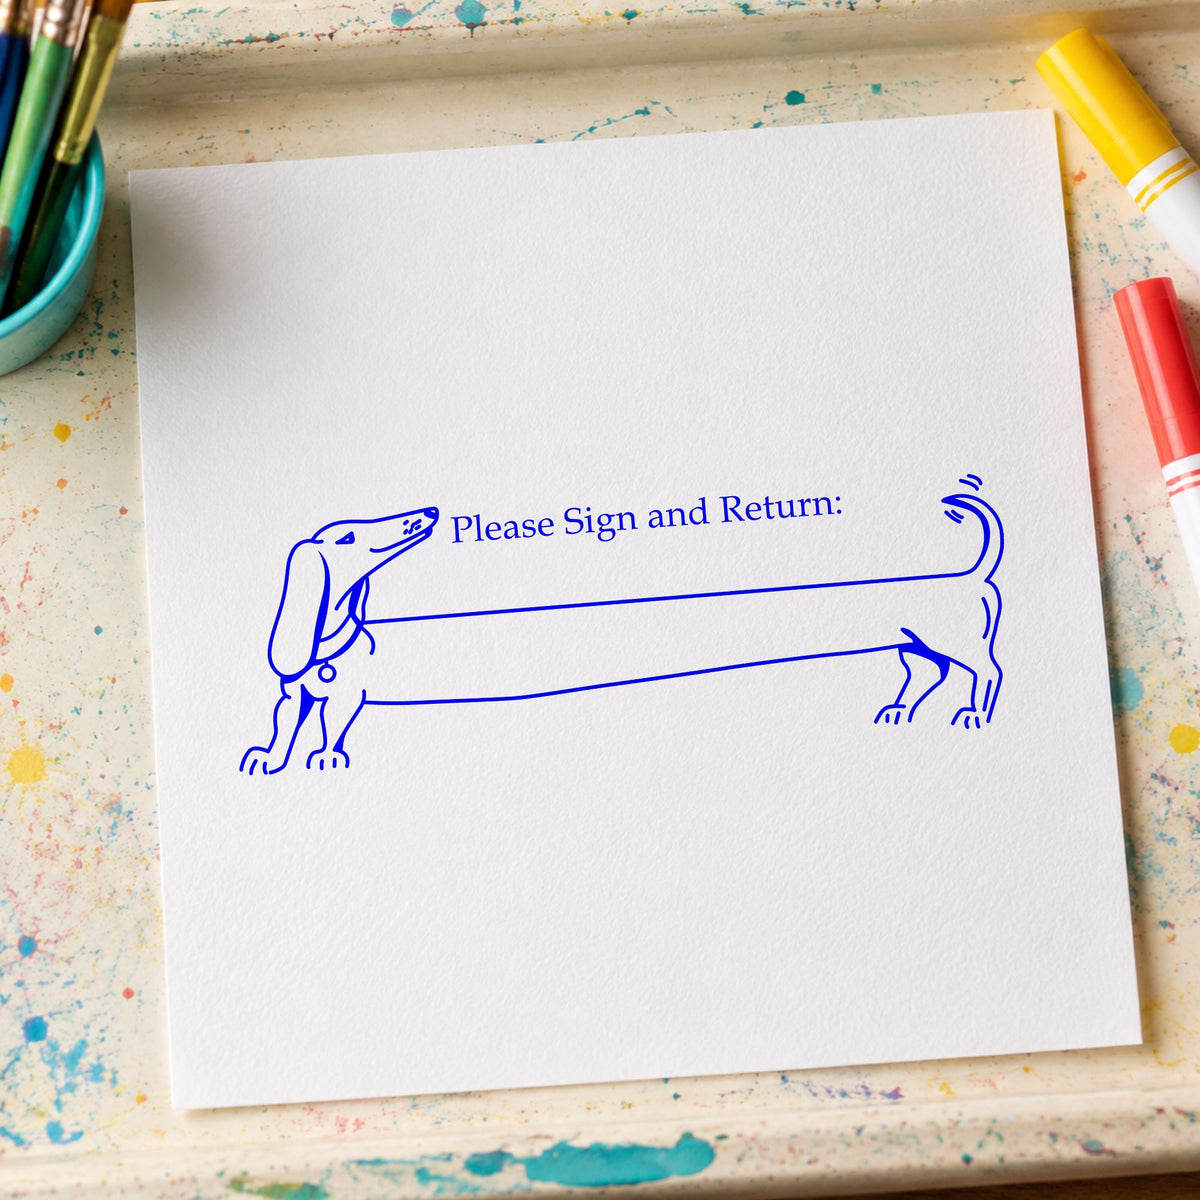 Please Sign and Return: